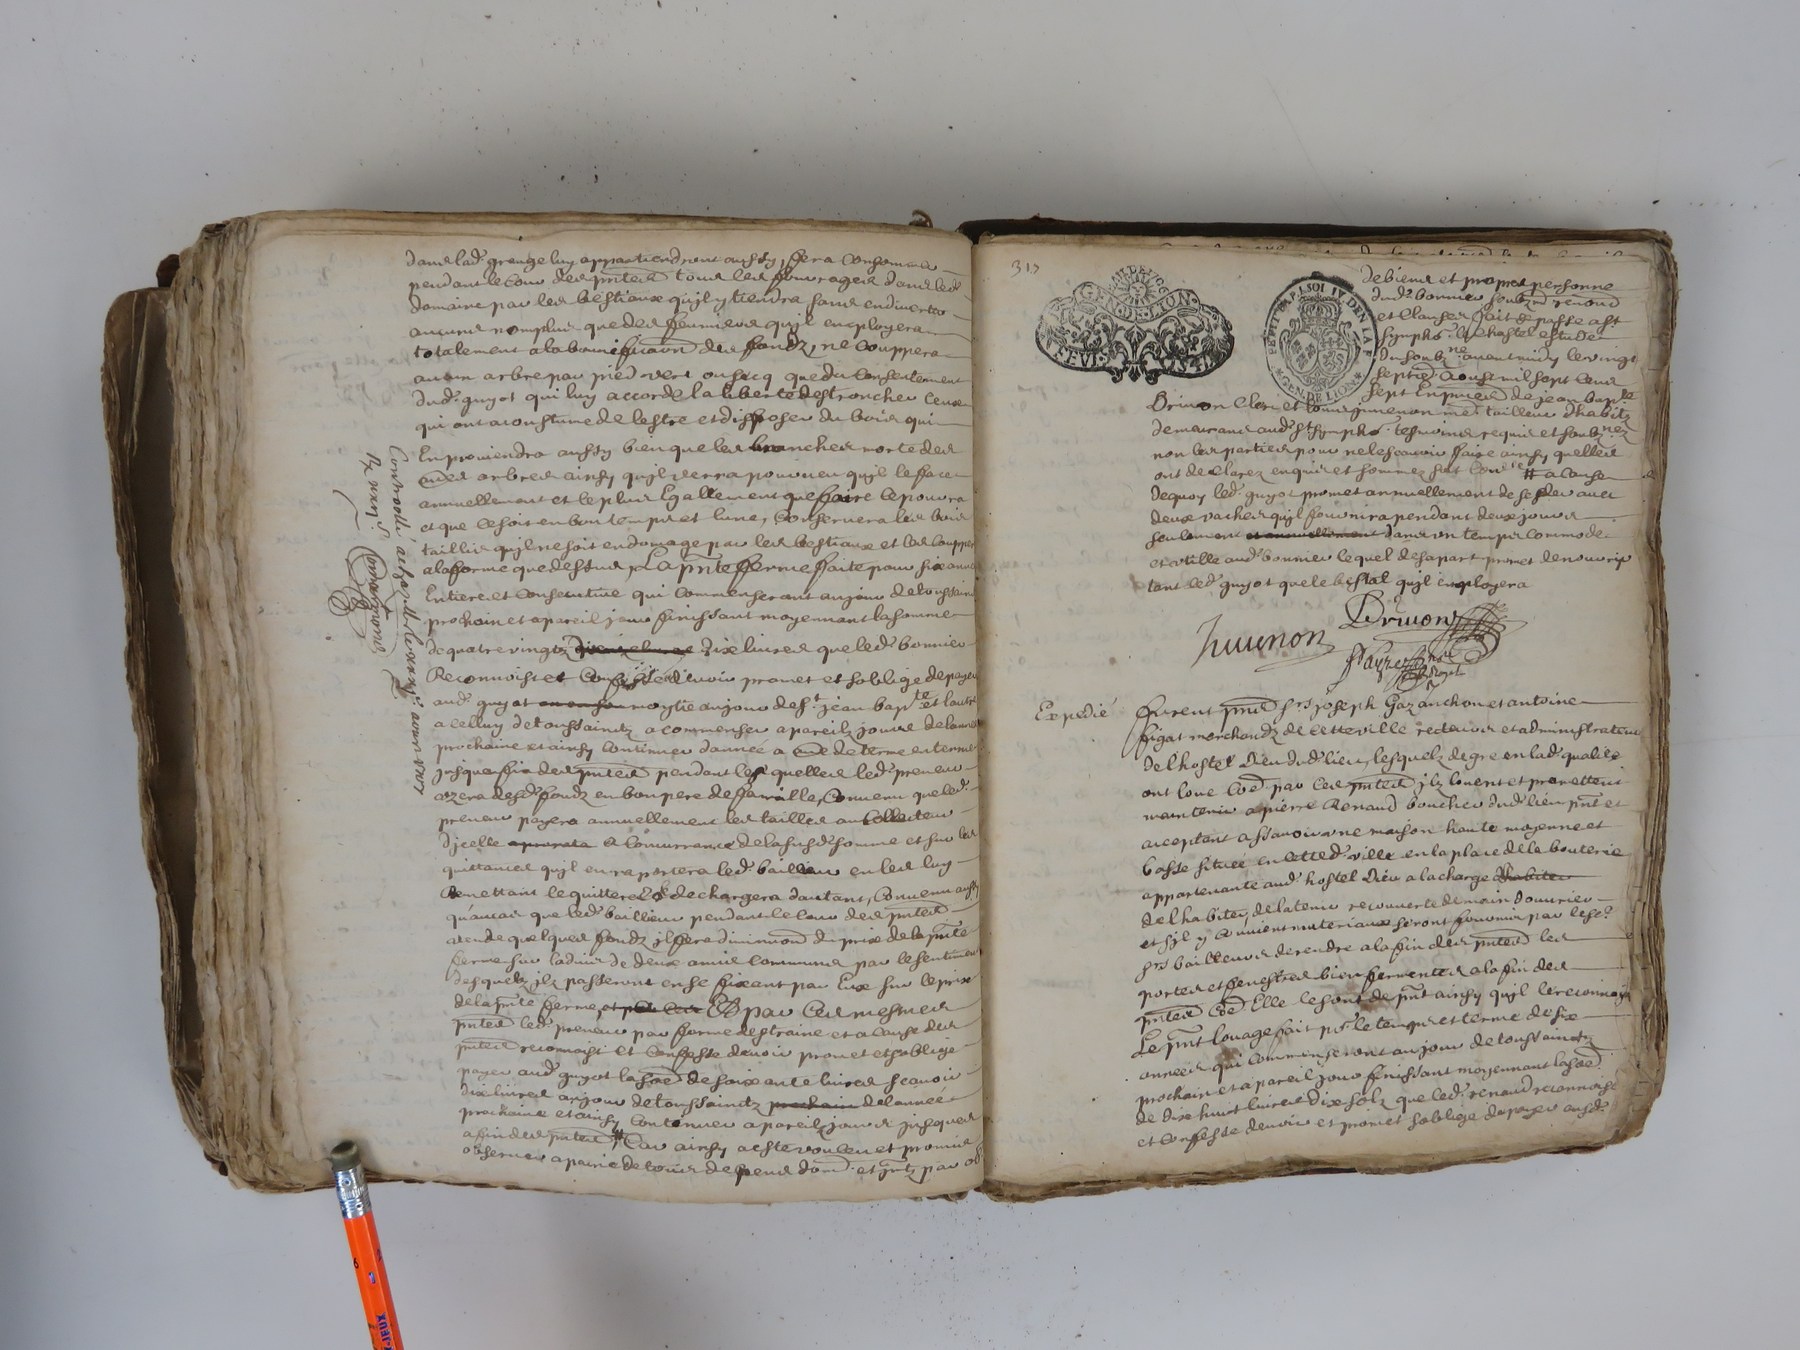 dans lad. grange luy appartiendront aussy, fera consommer
pendant le cour des pntes tous les fourrages dans led.
domaine par les bestiaux qu'il y tiendra sans en divertir
aucuns non plus que des fumiers qu'il employera
totalement a la bonifica̅on̅ des fondz, ne couppera
aucun arbre par pied vert ou secq que du consentement
dud. guyot qui luy accorde la liberté destroncher ceux
qui ont acoustume de lestre et disposer du bois qui
En proviendra aussy bien que les branches mortes des
arbres ainsy qu'il verra pourveu qu'il le face
annuellement et le plus Egallement que faire ce pourra
et que ce soit en bon temps et lune, Conservera les bois
taillis qu'il ne soit endomage par les bestiaux et les couppes
a la forme que dessus, La pnte ferme faite pour six années
Entieres et consecutive qui commenseront au jour de toussaint
prochain et a pareil jour finissant moyennant la somme
de quatre vingtz dixe livres que led. bonnier
Reconnoist et Confesse devoir promet et soblige de payer
aud. guyot moytie au jour de st jean bapte et lautre
a celluy de toussaintz a commenser a pareilz jours de lannée
prochaine et ainsy continuer dannée a de terme en terme
jusque a fin des pntes pendant les quelles led. preneur
uzera desd. fondz en bon pere de famille, Convenu que led.
preneur payera annuellement les tailles au Collecteur
d'jcelle a concurrance de la susd. somme et sur les
quittances qu'il en raportera led. bailleur en les luy
Remettant le quittere & dechargera dautant, Convenu aussy
qu'au cas que led. bailleur pendant le cour des pntes
vende quelques fondz il fera diminution du prix de la pnte
ferme sur ladvis de deux amis communs par le sentiment
desquelz ilz passeront en se fixant par Eux sur le prix
de la pnte ferme, Et par Ces mesmes
pntes led. preneur par forme destraine et a cause des
pntes reconnoist et Confesse devoir promet et soblige
payer aud. guyot la some de soixante livres scavoir
dix livres au jour de toussaintz prochain de lannée
prochaine et ainsy Continuer a pareilz jours jusques
a fin des pntes # Car ainsy a este voulu et promis
observer a peine de tous despens dom. et jntz par obl
Controollé a st le
R. Compagnons
317
GEN. DE LION
DEBIT CAP. J. SOL IV. DEN. LA F.
GEN. DE LION
de biens et propres personne
dud. bonnier soubzmis. renond
et Clauses fait & passe a st
sympho. le Chastel estude
du soubz.ne avant midy le vingt
septie. Aoust mil sept Cens
sept En pnces de jean bapte
Drivon Clerc et tailleur dhabitz
demeurans aud. st sympho. tesmoins requis et soubz.nez
non les parties pour ne le scavoir faire ainsy quelles
ont declarez enquis et sommez # a cause
de quoy led. guyot promet annuellement de aux
deux vaches qu'il fournira pendant deux jours
seulement et annuellement dans un temps commode
et utille aud. bonnier lequel de sa part promet de nourrir
tant led. guyot que le bestal qu'il employera
Drivon
Expedié
furent pnt srs joseph Gazanchon et antoine
figat marchandz de cette ville recteurs et administrateurs
de l'hostel Dieu dud. lieu, lesquelz de gre en lad. qualité
ont loue Coe. par Ces pntes jlz louent et promettent
maintenir a pierre Renaud boucher dud. lieu pnt et
acceptant assavoir une maison haute moyenne et
basse située en cetted. ville en la place de la bouterie
appartenante aud. hostel Dieu a la charge d'habiter
de l'habiter, de la tenir recouverte de main douvrier
et s'il y Convient materiaux seront fournis par lesd.
srs bailleurs de rendre a la fin des pntes les
portes et fenestres bien fermentes a la fin des
pntes Coe. Elle le sont de pnt ainsy qu'il le reconnoist
Le pnt louage fait pr. le temps et terme de six
années qui commenseront au jour de toussaintz
prochain et a pareil jour finissant moyennant la soe.
de dixe huict livres dix solz que led. renaud reconnoist
et Confesse devoir et promet soblige de payer ausd.